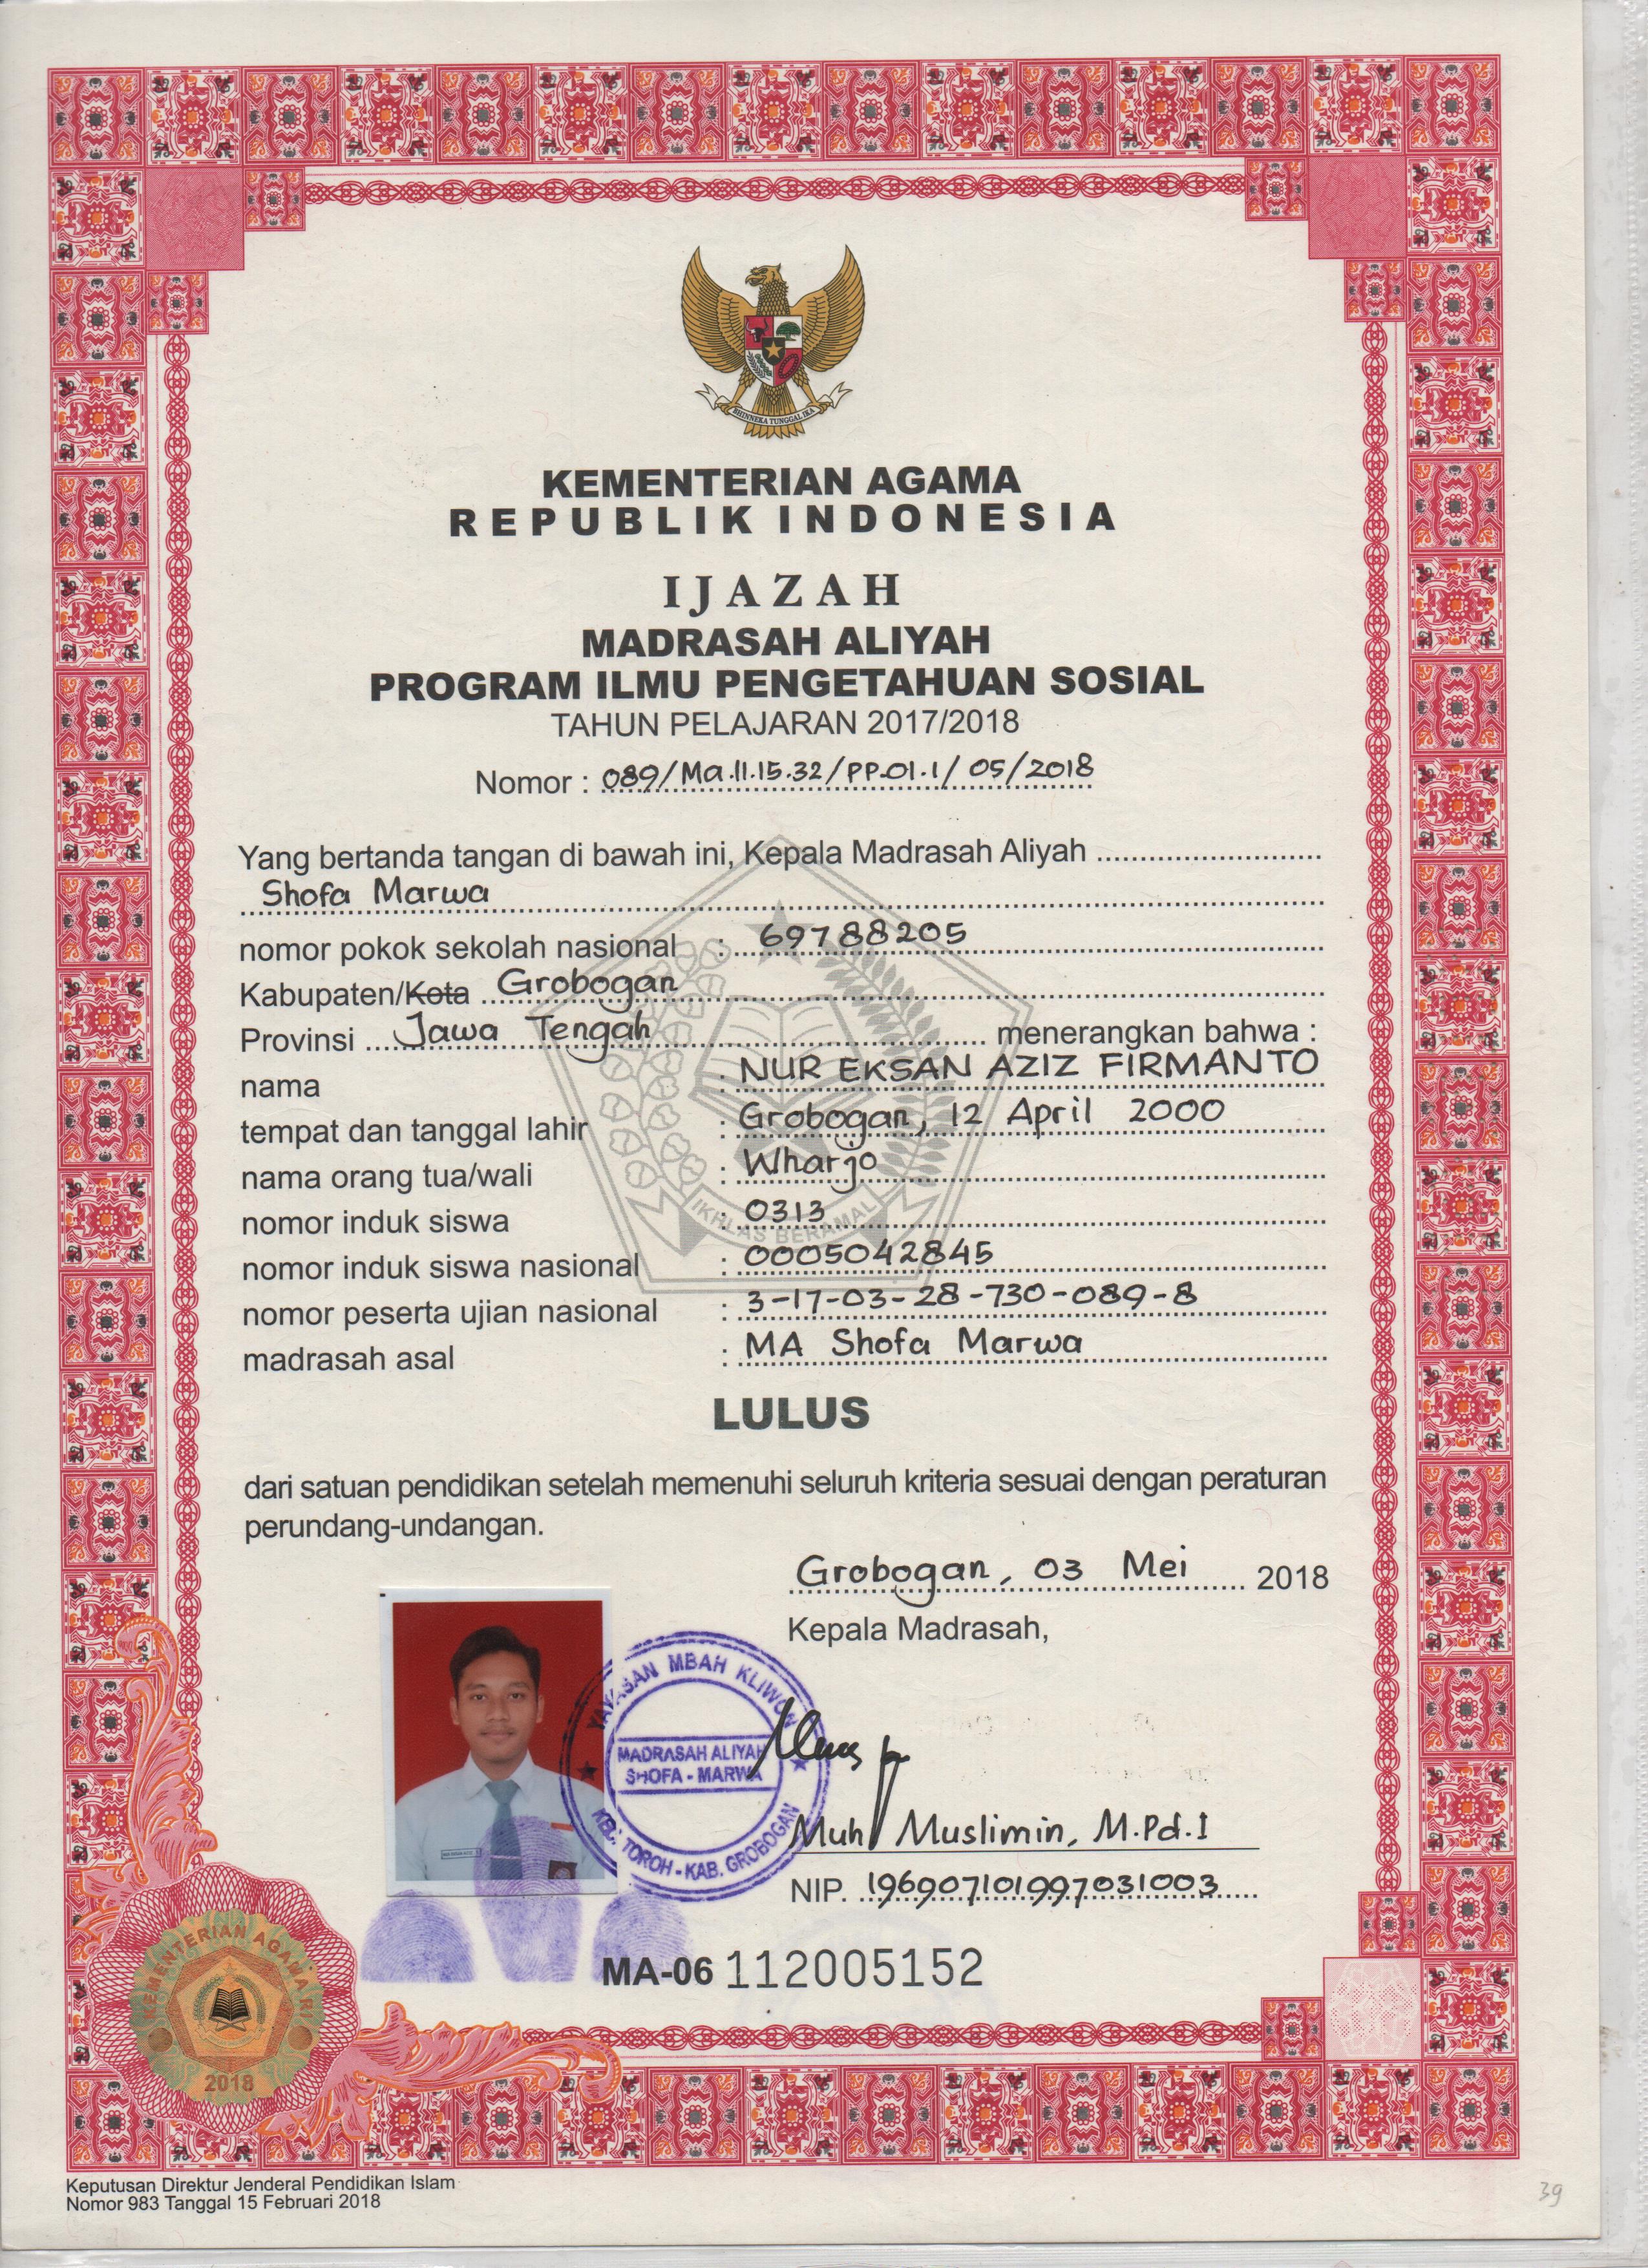 BHINNEKA TUNGGAL IKA
KEMENTERIAN AGAMA
REPUBLIK INDONESIA
IJAZAH
MADRASAH ALIYAH
PROGRAM ILMU PENGETAHUAN SOSIAL
TAHUN PELAJARAN 2017/2018
Nomor : 089/Ma.11.15.32/PP.01.1/05/2018
Yang bertanda tangan di bawah ini, Kepala Madrasah Aliyah
Shofa Marwa
nomor pokok sekolah nasional : 69788205
Kabupaten/Kota Grobogan
Provinsi Jawa Tengah menerangkan bahwa :
nama : NUR EKSAN AZIZ FIRMANTO
tempat dan tanggal lahir : Grobogan, 12 April 2000
nama orang tua/wali : Wharjo
nomor induk siswa : 0313
nomor induk siswa nasional : 0005042845
nomor peserta ujian nasional : 3-17-03-28-730-089-8
madrasah asal : MA Shofa Marwa
IKHLAS BERAMAL
LULUS
dari satuan pendidikan setelah memenuhi seluruh kriteria sesuai dengan peraturan
perundang-undangan.
Grobogan, 03 Mei 2018
Kepala Madrasah,
YAYASAN MBAH KLIWON
MADRASAH ALIYAH
SHOFA - MARWA
KEC. TOROH - KAB. GROBOGAN
Muh Muslimin, M.Pd.I
NIP. 196907101997031003
MA-06 112005152
KEMENTERIAN AGAMA RI
2018
Keputusan Direktur Jenderal Pendidikan Islam
Nomor 983 Tanggal 15 Februari 2018
39